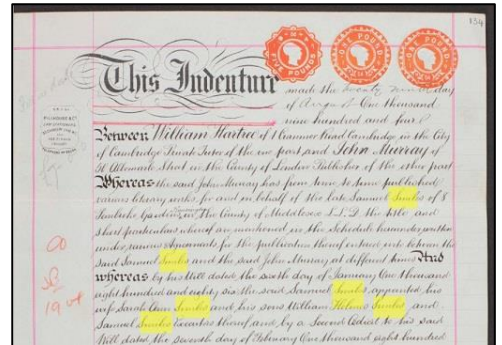 154
FIVE POUNDS
ONE POUND
ONE POUND
This Indenture made the twenty ninth day
of August One thousand
nine hundred and four
Between William Hartree of 1 Cranmer Road Cambridge in the City
of Cambridge Tutor of the one part and John Murray of
50 Albemarle Street in the County of London Publisher of the other part
Whereas the said John Murray has from time to time published
various literary works for and on behalf of the late Samuel Smiles of 8
Pembroke Gardens in the County of Middlesex L.L.D. the titles and
short particulars whereof are mentioned in the Schedule hereunder written
under various Agreements for the publication thereof entered into between the
said Samuel Smiles and the said John Murray at different times And
whereas by his Will dated the sixth day of January One thousand
eight hundred and eighty six the said Samuel Smiles appointed his
wife Sarah Ann Smiles and his sons William Holmes Smiles and
Samuel Smiles Executors thereof and by a Second Codicil to his said
Will dated the seventh day of February One thousand eight hundred